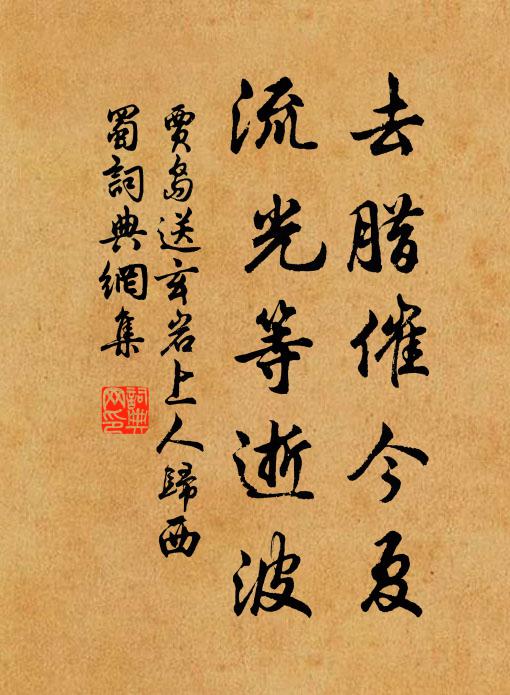 去腊催今夏
流光等逝波
贾岛送玄岩上人歸西
蜀詞典網集
詞典网印